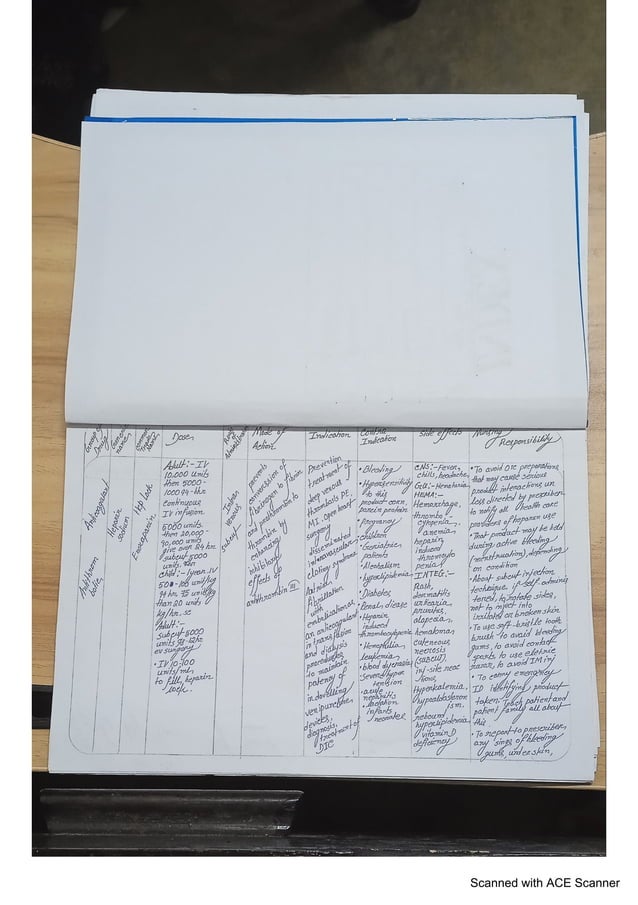 Group of Drug
Generic name
common Trade Name
Dose
Route of Administration
Mode of Action
Indication
Contra Indication
Side effects
Nursing Responsibility
Anticoagulant
Antithrom
botic,
Heparin
sodium
Hep lock
Enoxaparin
Adult:- IV
10,000 units
then 5000-
1000 4-6hr
continuous
IV infusion
5000 units
then 20,000-
40,000 units
give over 24hr
subcut 5000
units
child:- 1year IV
50-100 unit/kg
4hr, 75 unit/kg
than 20 unit,
kg/hr. sc
Adult:-
Subcut-5000
units 8-12hr
surgery
• IV 10-100
units/ml
to fill heparin
lock.
Intra
venous
subcut
Prevents
conversion of
fibrinogen to fibrin
and prothrombin to
thrombin by
enhancing
inhibitory
effects of
antithrombin III
Prevention
treatment of
deep venous
thrombosis PE,
MI, open heart
surgery
disseminated
intravascular
clotting syndrome
Atrial
fibrillation
with
embolization,
an anticoagulant
in transfusion
and dialysis
procedures
to maintain
patency of
indwelling
venipuncture
devices,
diagnosis,
treatment of
DIC
• Bleeding
• Hypersensitivity
to this
product corn,
porcin protein
• Pregnancy
• children
• Geriatric
patients
• Alcoholism
• hyperlipidemia
• Diabetes
• Renal disease
• Heparin
induced
thrombocytopenia
• Hemophilia
• leukemia
• blood dyscrasia
• Severe hyper
tension
• acute
nephritis
• lactation
infants
neonates
CNS:- Fever,
chills, headache,
GU:- Hematuria
HEMA:-
Hemorrhage,
thrombo
cytopenia
anemia
heparin
induced
thrombocyto
penia
INTEG:-
Rash,
dermatitis
urticaria
pruritus,
alopecia,
hematomas
cutaneous
necrosis
(subcut),
inj-site reac
tions,
Hyperkalemia,
hypoaldosteron
ism,
rebound
hyperlipidemia
vitamin D
deficiency
• To avoid OTC preparations
that may cause serious
product interactions un
less directed by prescriber,
to notify all health care
providers of heparin use
• That product may be held
during active bleeding
(menstruation), depending
on condition
• About subcut injection
technique if self adminis
tered, to rotate sites,
not to inject into
irritated or broken skin
• To use soft-bristle tooth
brush to avoid bleeding
gums, to avoid contact
sports to use electric
razor, to avoid IM inj
• To carry emergency
ID identifying product
taken: Teach patient and
patient family all about
this
• To report to prescriber,
any signs of bleeding
gums, under skin,
Scanned with ACE Scanner